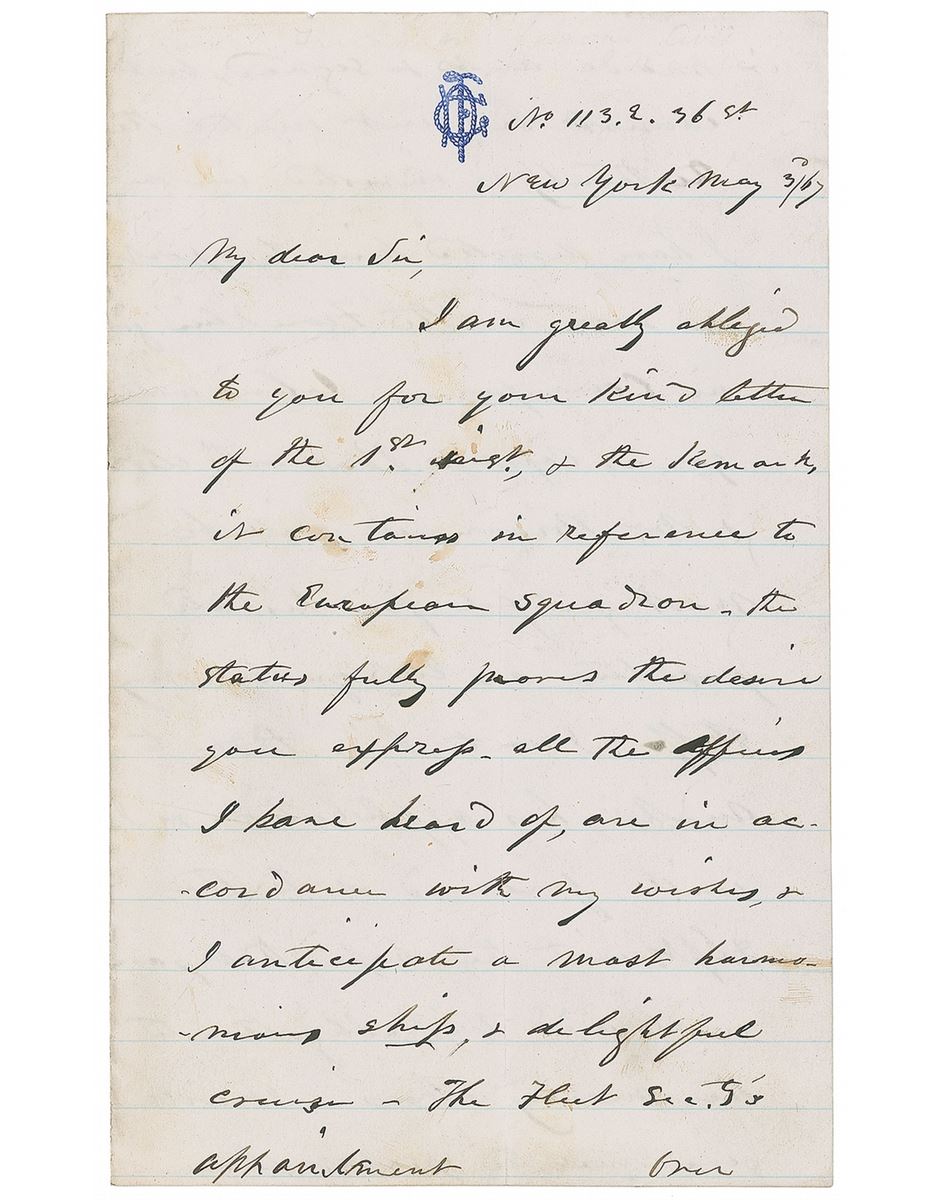 No. 113. E. 36 St.
New York May 3d/67
My dear Sir,
I am greatly obliged
to you for your kind letter
of the 1st. inst., & the Remarks,
it contains in reference to
the European Squadron - the
status fully proves the desire
you express - all the officers
I have heard of, are in ac-
-cordance with my wishes, &
I anticipate a most harmo-
-nious ship, & delightful
cruise - The Fleet Sec.ty's
appointment over